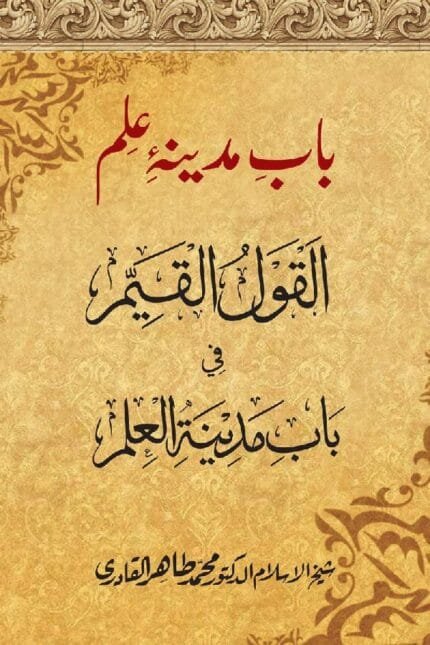 بابِ مدینۂ عِلم
اَلْقَوْلُ الْقَيِّم
فِي
بَابِ مَدِيْنَةِ الْعِلْمِ
شیخ الاسلام الدکتور محمد طاہر القادری